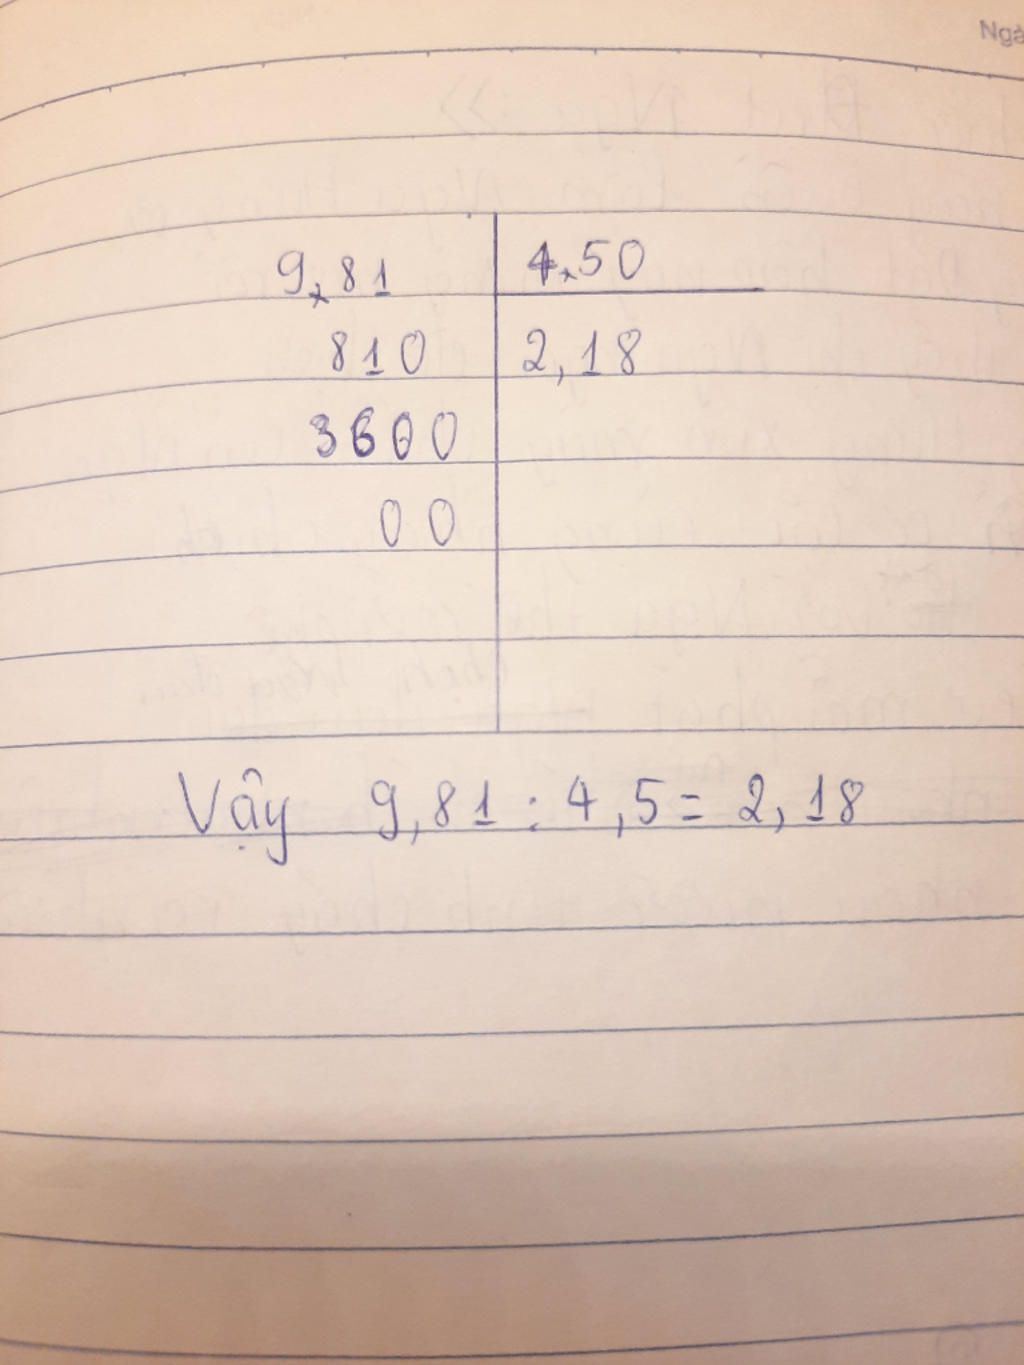 Ngà
9,81 4,50
810 2,18
3600
00
Vậy 9,81 : 4,5 = 2,18